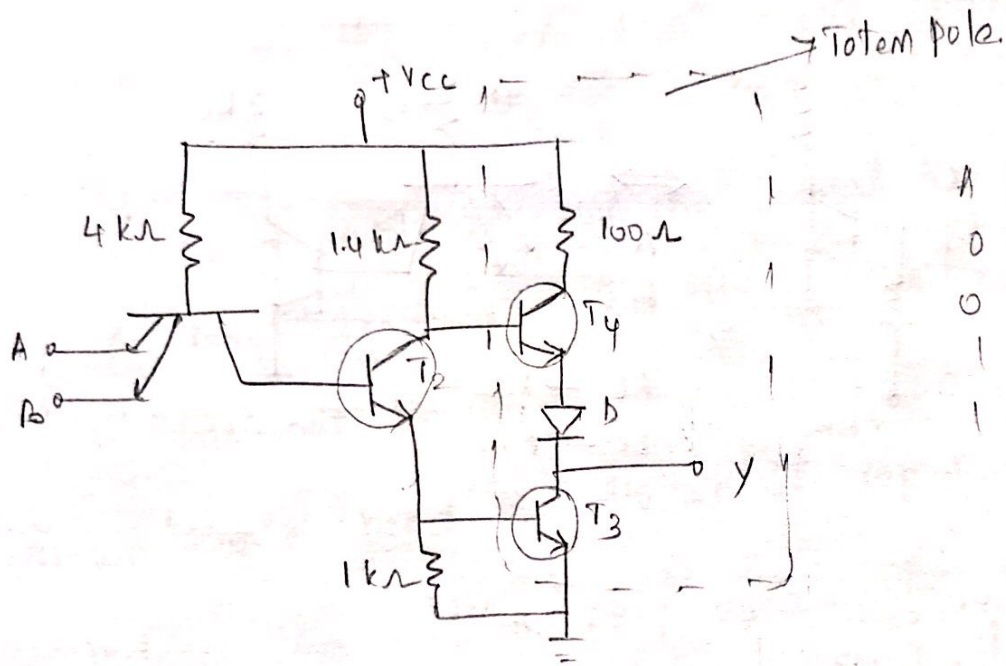 Totem pole.
+Vcc
4 kΩ
1.4 kΩ
100 Ω
A
B
T2
T4
D
Y
T3
1 kΩ
A
0
0
1
1